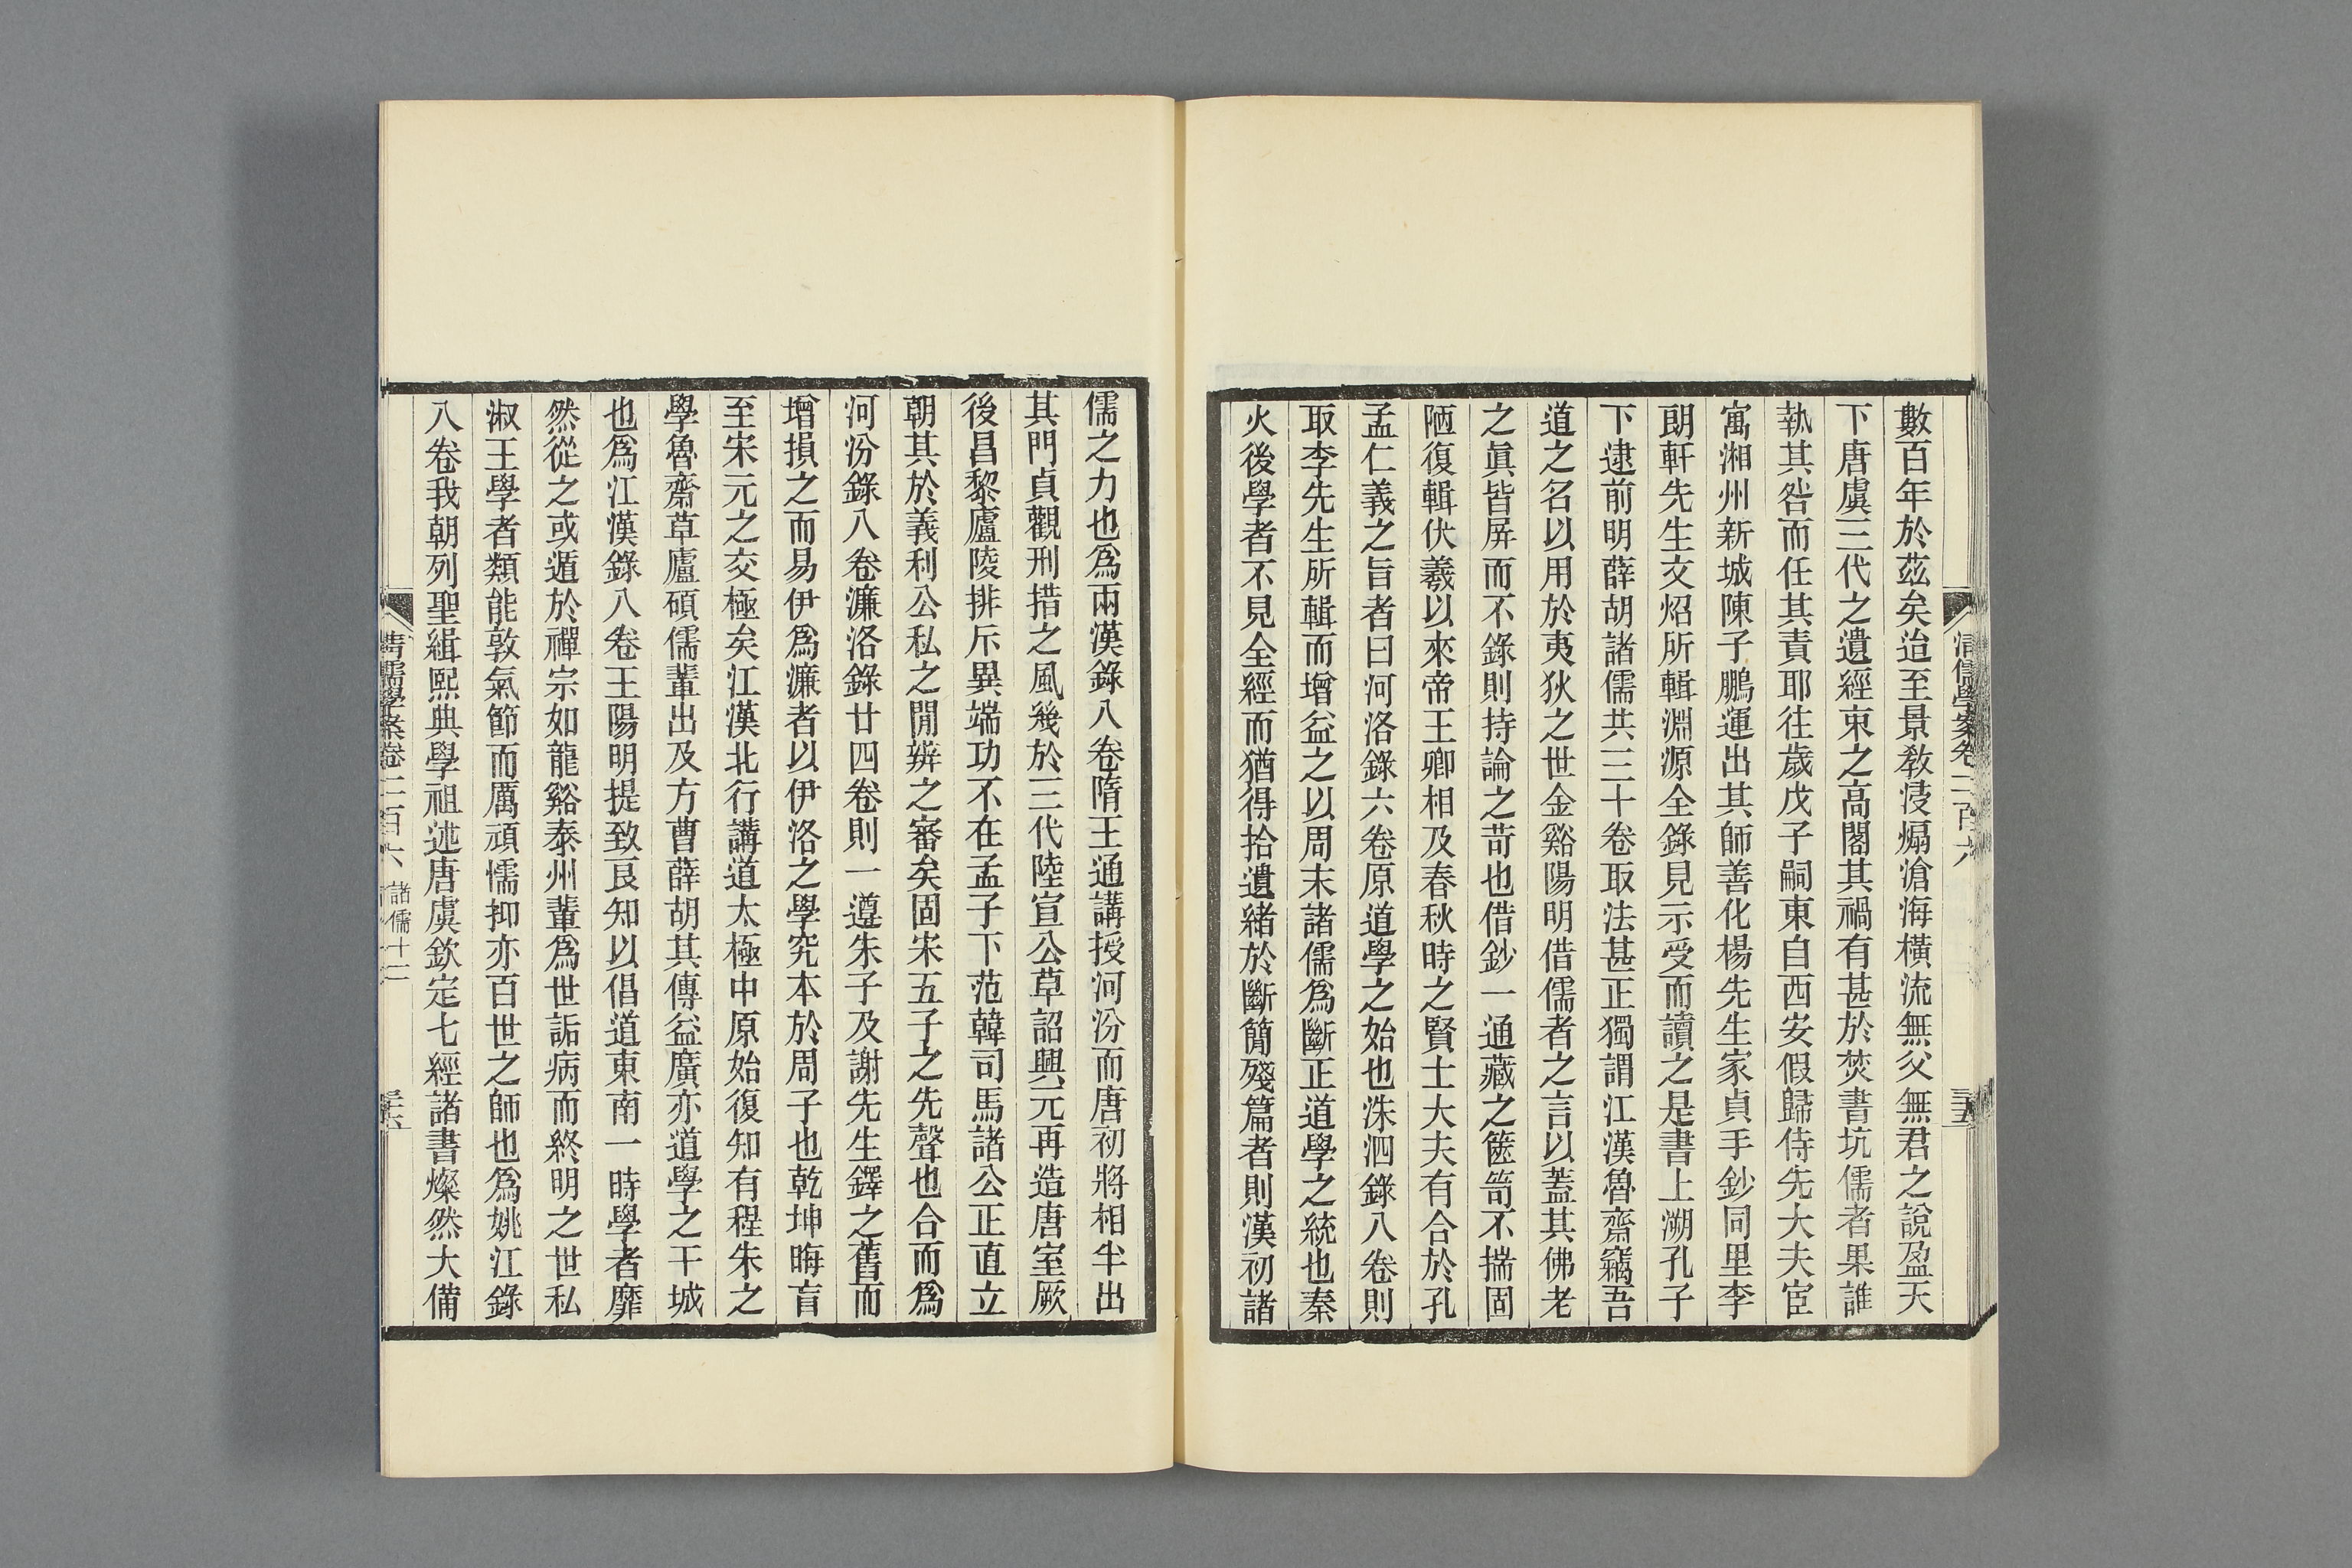 數百年於茲矣迨至景敎浸煽滄海橫流無父無君之說盈天
下唐虞三代之遺經束之高閣其禍有甚於焚書坑儒者果誰
執其咎而任其責耶往歲戊子嗣東自西安假歸侍先大夫宦
寓湘州新城陳子鵬運出其師善化楊先生家貞手鈔同里李
朗軒先生文炤所輯淵源全錄見示受而讀之是書上溯孔子
下逮前明薛胡諸儒共三十卷取法甚正獨謂江漢魯齋竊吾
道之名以用於夷狄之世金谿陽明借儒者之言以蓋其佛老
之眞皆屏而不錄則持論之苛也借鈔一通藏之篋笥不揣固
陋復輯伏羲以來帝王卿相及春秋時之賢士大夫有合於孔
孟仁義之旨者曰河洛錄六卷原道學之始也洙泗錄八卷則
取李先生所輯而增益之以周末諸儒爲斷正道學之統也秦
火後學者不見全經而猶得拾遺緒於斷簡殘篇者則漢初諸
清儒學案卷二百六
三五
儒之力也爲兩漢錄八卷隋王通講授河汾而唐初將相半出
其門貞觀刑措之風幾於三代陸宣公草詔興元再造唐室厥
後昌黎廬陵排斥異端功不在孟子下范韓司馬諸公正直立
朝其於義利公私之閒辨之審矣固宋五子之先聲也合而爲
河汾錄八卷濂洛錄廿四卷則一遵朱子及謝先生鐸之舊而
增損之而易伊爲濂者以伊洛之學究本於周子也乾坤晦盲
至宋元之交極矣江漢北行講道太極中原始復知有程朱之
學魯齋草廬碩儒輩出及方曹薛胡其傳益廣亦道學之干城
也爲江漢錄八卷王陽明提致良知以倡道東南一時學者靡
然從之或遁於禪宗如龍谿泰州輩爲世詬病而終明之世私
淑王學者類能敦氣節而厲頑懦抑亦百世之師也爲姚江錄
八卷我朝列聖緝熙典學祖述唐虞欽定七經諸書燦然大備
清儒學案卷二百六 諸儒十二
三六